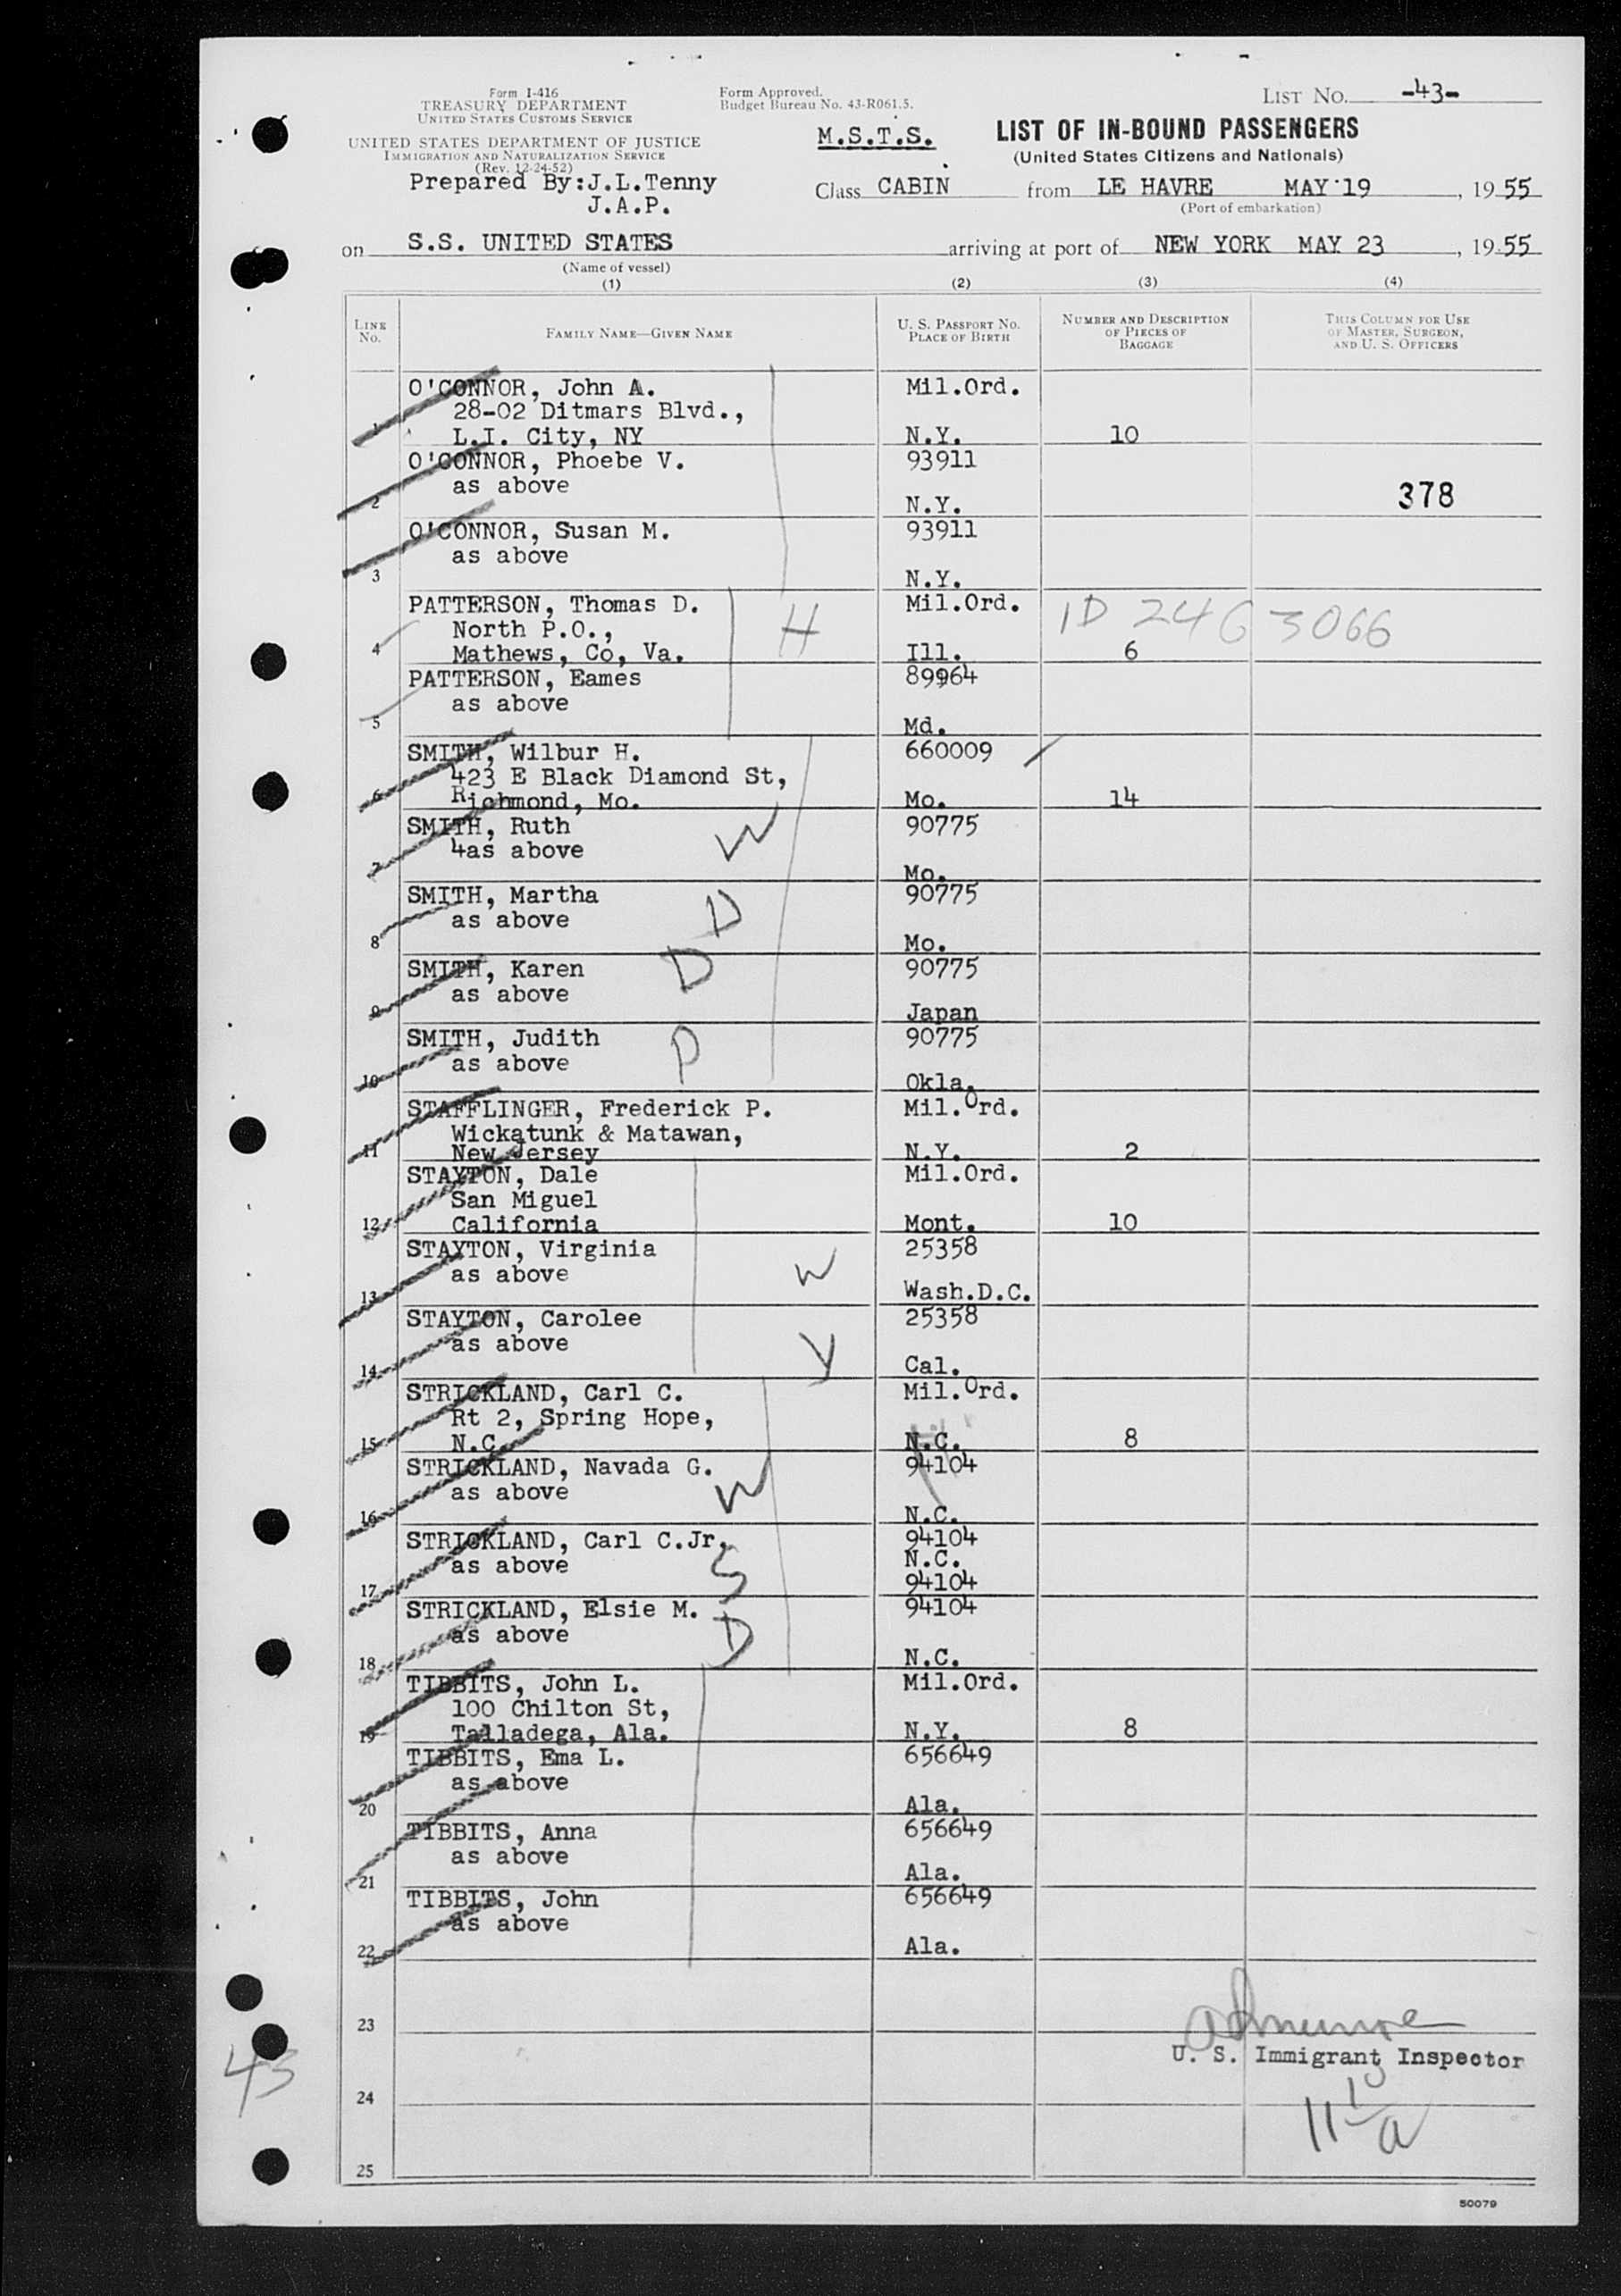 Form I-416
TREASURY DEPARTMENT
UNITED STATES CUSTOMS SERVICE
UNITED STATES DEPARTMENT OF JUSTICE
IMMIGRATION AND NATURALIZATION SERVICE
(Rev. 12-24-52)
Prepared By:J.L.Tenny
J.A.P.
Form Approved.
Budget Bureau No. 43-R061.5.
M.S.T.S.
LIST NO. -43-
LIST OF IN-BOUND PASSENGERS
(United States Citizens and Nationals)
Class CABIN from LE HAVRE MAY 19, 1955
(Port of embarkation)
on S.S. UNITED STATES arriving at port of NEW YORK MAY 23, 1955
(Name of vessel)
(1) (2) (3) (4)
LINE NO. FAMILY NAME—GIVEN NAME U. S. PASSPORT NO. PLACE OF BIRTH NUMBER AND DESCRIPTION OF PIECES OF BAGGAGE THIS COLUMN FOR USE OF MASTER, SURGEON, AND U. S. OFFICERS
O'CONNOR, John A. Mil.Ord.
28-02 Ditmars Blvd.,
1 L.I. City, NY N.Y. 10
O'CONNOR, Phoebe V. 93911
as above
2 N.Y. 378
O'CONNOR, Susan M. 93911
as above
3 N.Y.
PATTERSON, Thomas D. Mil.Ord. ID 246 3066
North P.O., H
4 Mathews, Co, Va. Ill. 6
PATTERSON, Eames 89964
as above
5 Md.
SMITH, Wilbur H. 660009
423 E Black Diamond St,
6 Richmond, Mo. Mo. 14
SMITH, Ruth 90775
4as above W
7 Mo.
SMITH, Martha 90775
as above D
8 Mo.
SMITH, Karen D 90775
as above
9 Japan
SMITH, Judith P 90775
as above
10 Okla.
STAFFLINGER, Frederick P. Mil.Ord.
Wickatunk & Matawan,
11 New Jersey N.Y. 2
STAYTON, Dale Mil.Ord.
San Miguel
12 California Mont. 10
STAYTON, Virginia 25358
as above W
13 Wash.D.C.
STAYTON, Carolee 25358
as above Y
14 Cal.
STRICKLAND, Carl C. Mil.Ord.
Rt 2, Spring Hope,
15 N.C. N.C. 8
STRICKLAND, Navada G. 94104
as above W
16 N.C.
STRICKLAND, Carl C.Jr. 94104
as above S N.C.
17 94104
STRICKLAND, Elsie M. 94104
as above D
18 N.C.
TIBBITS, John L. Mil.Ord.
100 Chilton St,
19 Talladega, Ala. N.Y. 8
TIBBITS, Ema L. 656649
as above
20 Ala.
TIBBITS, Anna 656649
as above
21 Ala.
TIBBITS, John 656649
as above
22 Ala.
23
U. S. Immigrant Inspector
43
24
25
50079